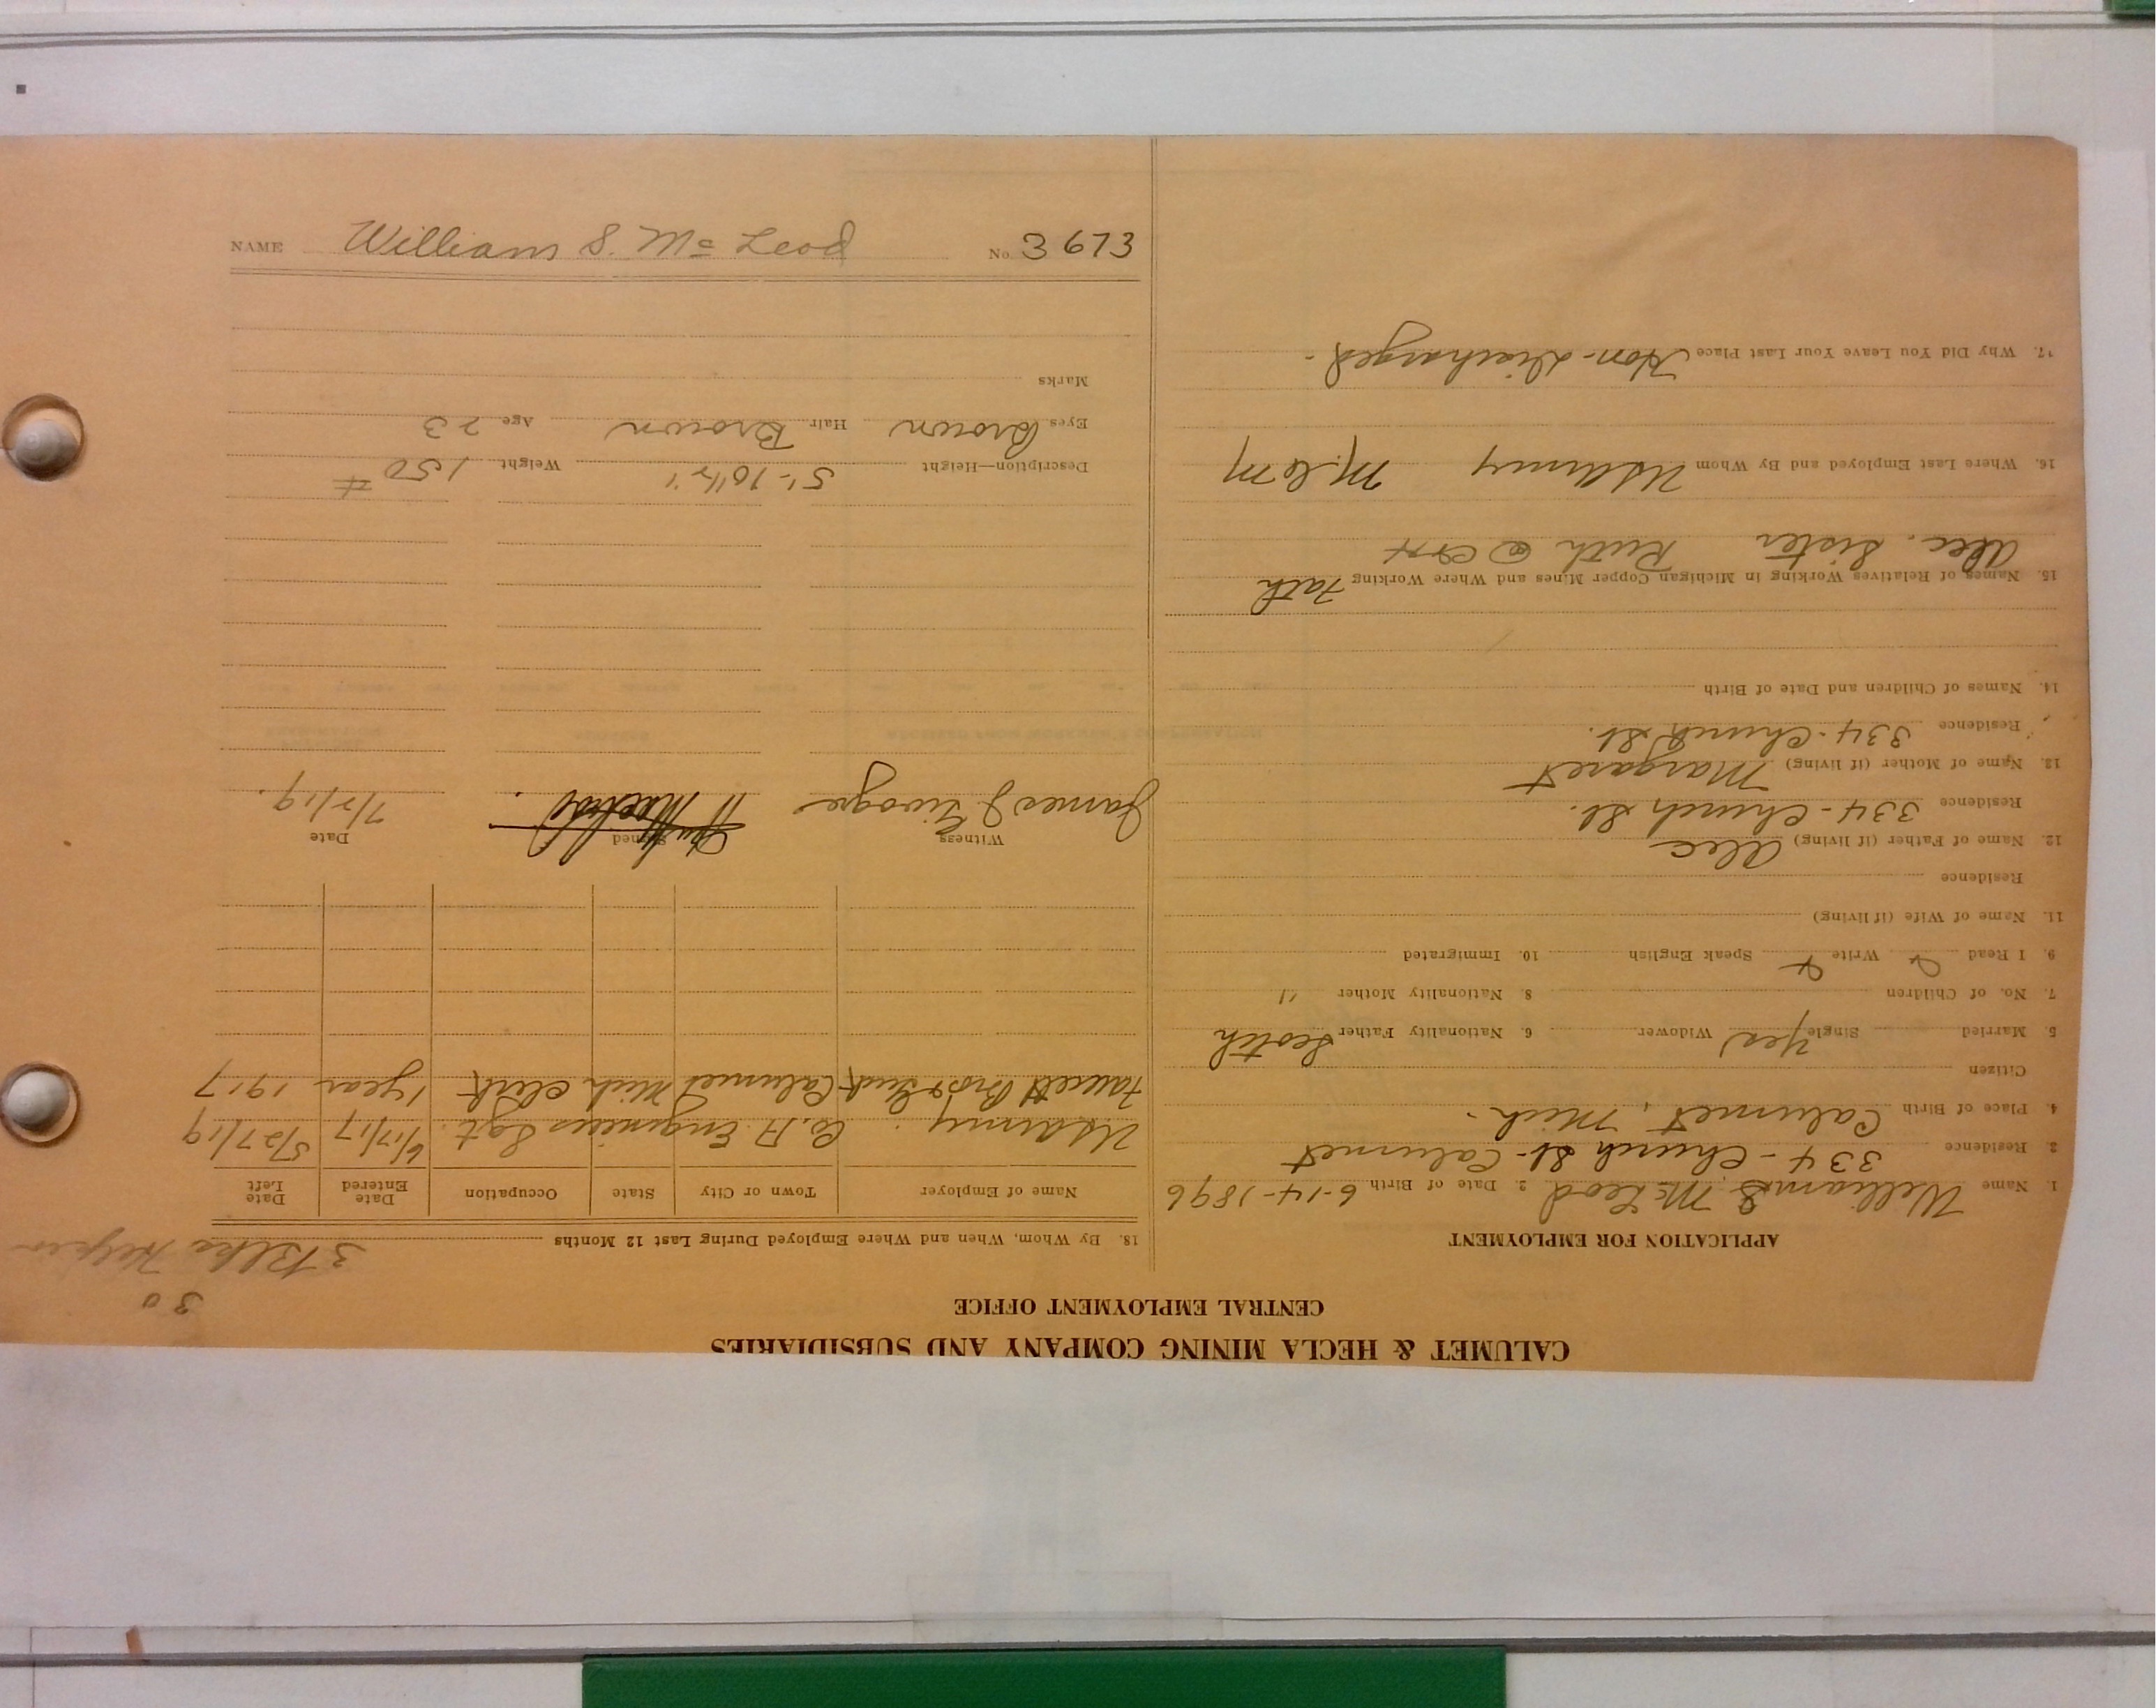 NAME William S. Mc Leod No. 3673
CALUMET & HECLA MINING COMPANY AND SUBSIDIARIES
CENTRAL EMPLOYMENT OFFICE
APPLICATION FOR EMPLOYMENT
1. Name William S. McLeod 2. Date of Birth 6-14-1896
3. Residence 334-Church St-Calumet
4. Place of Birth Calumet, Mich.
Citizen
5. Married Single Yes Widower 6. Nationality Father Scotch
7. No. of Children 8. Nationality Mother "
9. I Read Write Speak English 10. Immigrated
11. Name of Wife (if living)
Residence
12. Name of Father (if living) Alec
Residence 334-Church St.
13. Name of Mother (if living) Margaret
Residence 334-Church St.
14. Names of Children and Date of Birth
15. Names of Relatives Working in Michigan Copper Mines and Where Working Fath
Alec. Sister Ruth @ C&H
16. Where Last Employed and By Whom US Army
17. Why Did You Leave Your Last Place Hon-Discharged-
30
3 Blks Helper
18. By Whom, When and Where Employed During Last 12 Months
Name of Employer Town or City State Occupation Date Entered Date Left
US Army. Co. A. Engineers Sgt. 6/17/17 5/27/19
Bros & Calumet Mich Clerk 1 year 1917
Witness Signed Date
James J 7/7/19.
Description—Height 5'-10½" Weight 150 #
Eyes Brown Hair Brown Age 23
Marks